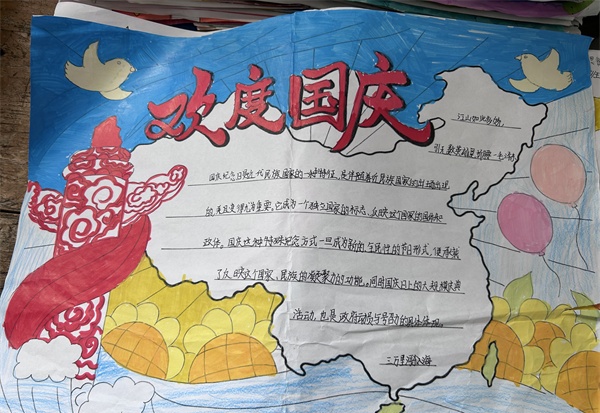 欢度国庆
江山如此多娇,
引无数英雄竞折腰
国庆纪念日是近代民族国家的一种特征,是伴随着近代民族国家的出现而出现
的,并且变得尤为重要,它成为一个独立国家的标志,反映这个国家的国体和
政体。国庆这种特殊纪念方式一旦成为新的、全民性的节日形式,便承载
了反映这个国家、民族的凝聚力的功能。同时国庆日上的大规模庆典
活动,也是政府动员与号召力的具体体现。
三万里河东入海